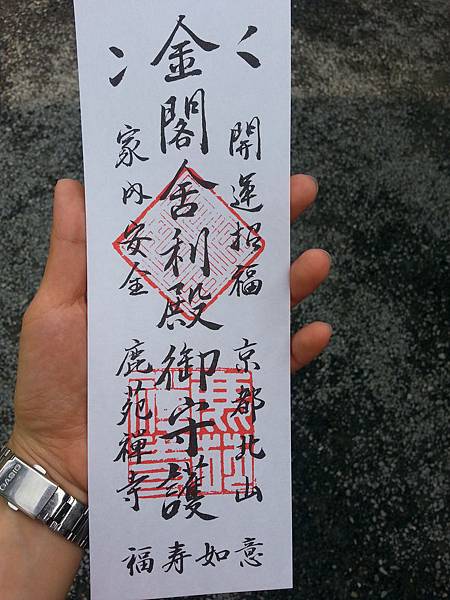 開運招福 京都北山
金閣舍利殿御守護
家内安全 鹿苑禪寺
福寿如意
CASIO